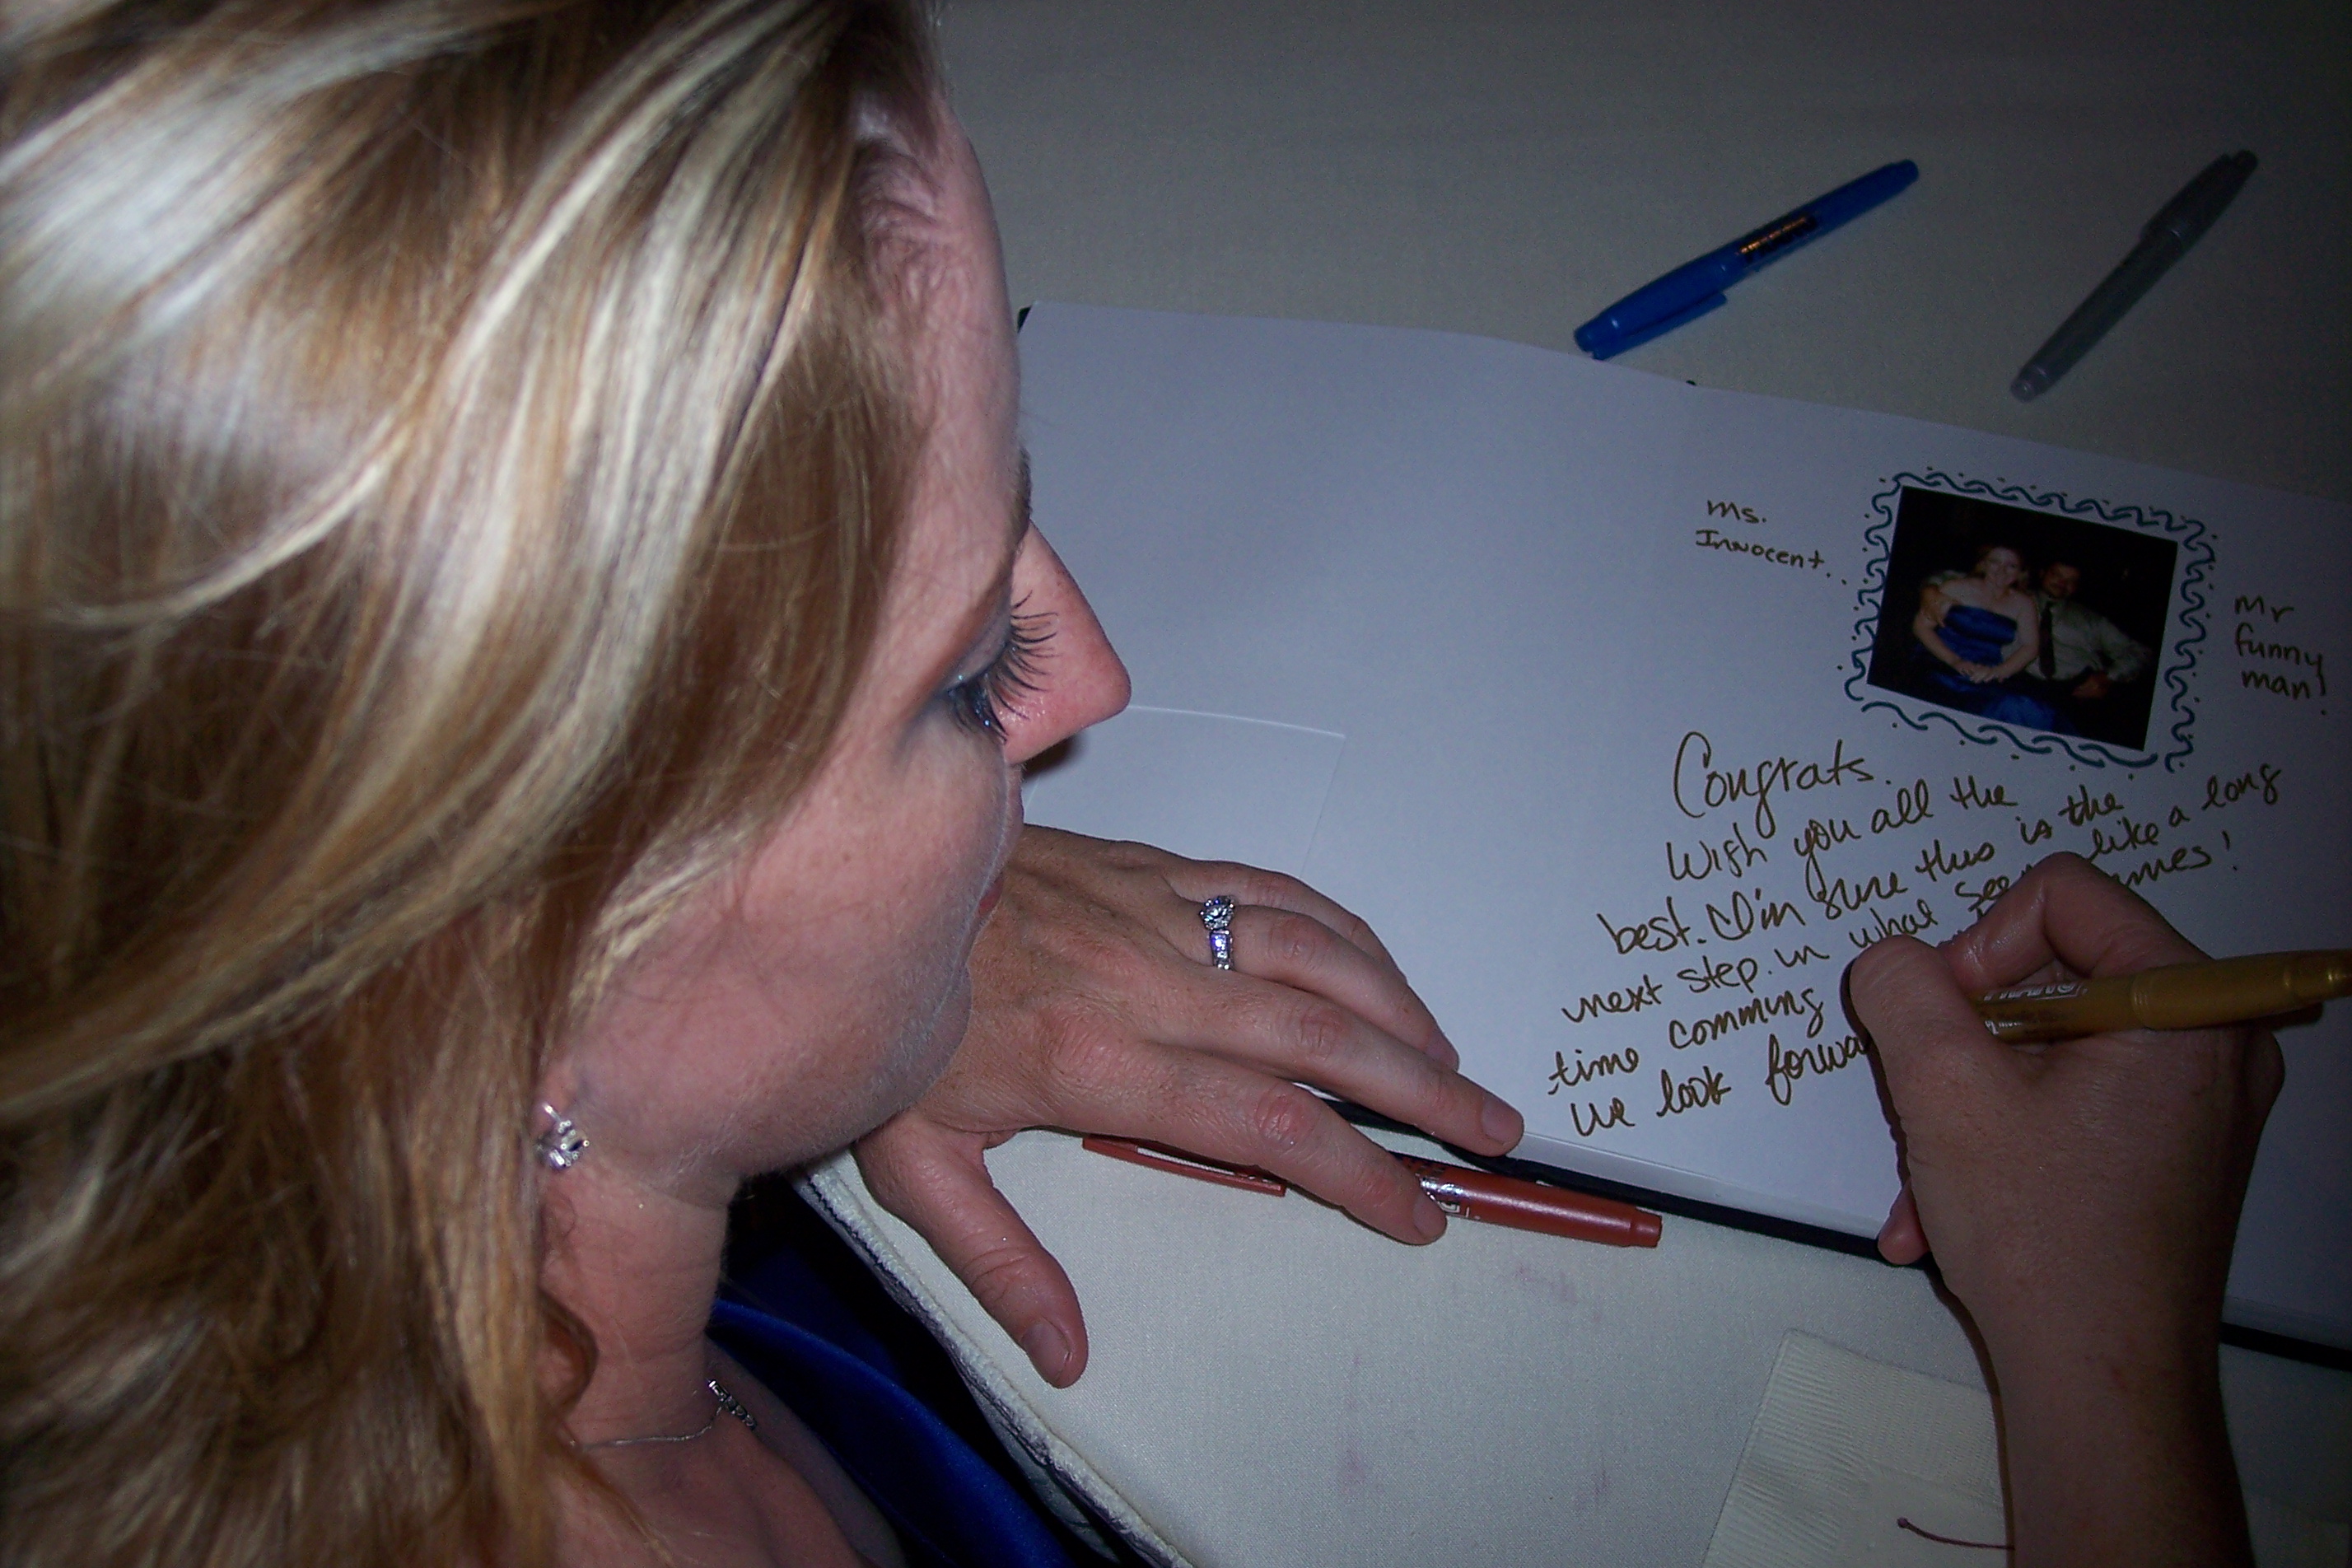 Ms.
Innocent..
Mr
funny
man!
Congrats.
Wish you all the
best. I'm sure this is the
next step in what like a long
time comming
We look